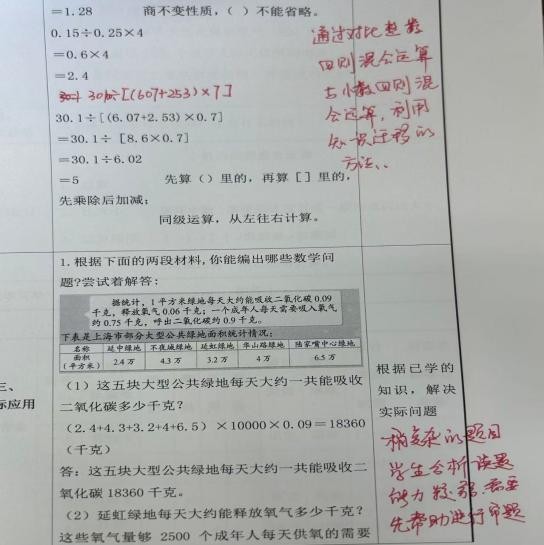 =1.28 商不变性质，（ ）不能省略。
0.15÷0.25×4
=0.6×4
=2.4
30.1÷[(6.07+2.53)×0.7]
=30.1÷ [8.6×0.7]
=30.1÷6.02
=5 先算（）里的，再算［］里的，
先乘除后加减；
同级运算，从左往右计算。
通过对比整数
四则混合运算
与小数四则混
合运算，利用
知识迁移的
方法、、
三、
际应用
1.根据下面的两段材料,你能编出哪些数学问
题?尝试着解答:
据统计，1平方米绿地每天大约能吸收二氧化碳0.09
千克，释放氧气0.06千克；一个成年人每天需要吸入氧气
约0.75千克，呼出二氧化碳约0.9千克。
下表是上海市部分大型公共绿地面积统计情况：
名称 延中绿地 不夜城绿地 延虹绿地 华山路绿地 陆家嘴中心绿地
面积（平方米） 2.4万 4.3万 3.2万 4万 6.5万
（1）这五块大型公共绿地每天大约一共能吸收
二氧化碳多少千克？
（2.4+4.3+3.2+4+6.5）×10000×0.09=18360
（千克）
答：这五块大型公共绿地每天大约一共能吸收二
氧化碳 18360 千克。
（2）延虹绿地每天大约能释放氧气多少千克？
这些氧气量够 2500 个成年人每天供氧的需要
根据已学的
知识，解决
实际问题
稍复杂的题目
学生分析读题
能力较弱,需要
先帮助进行审题